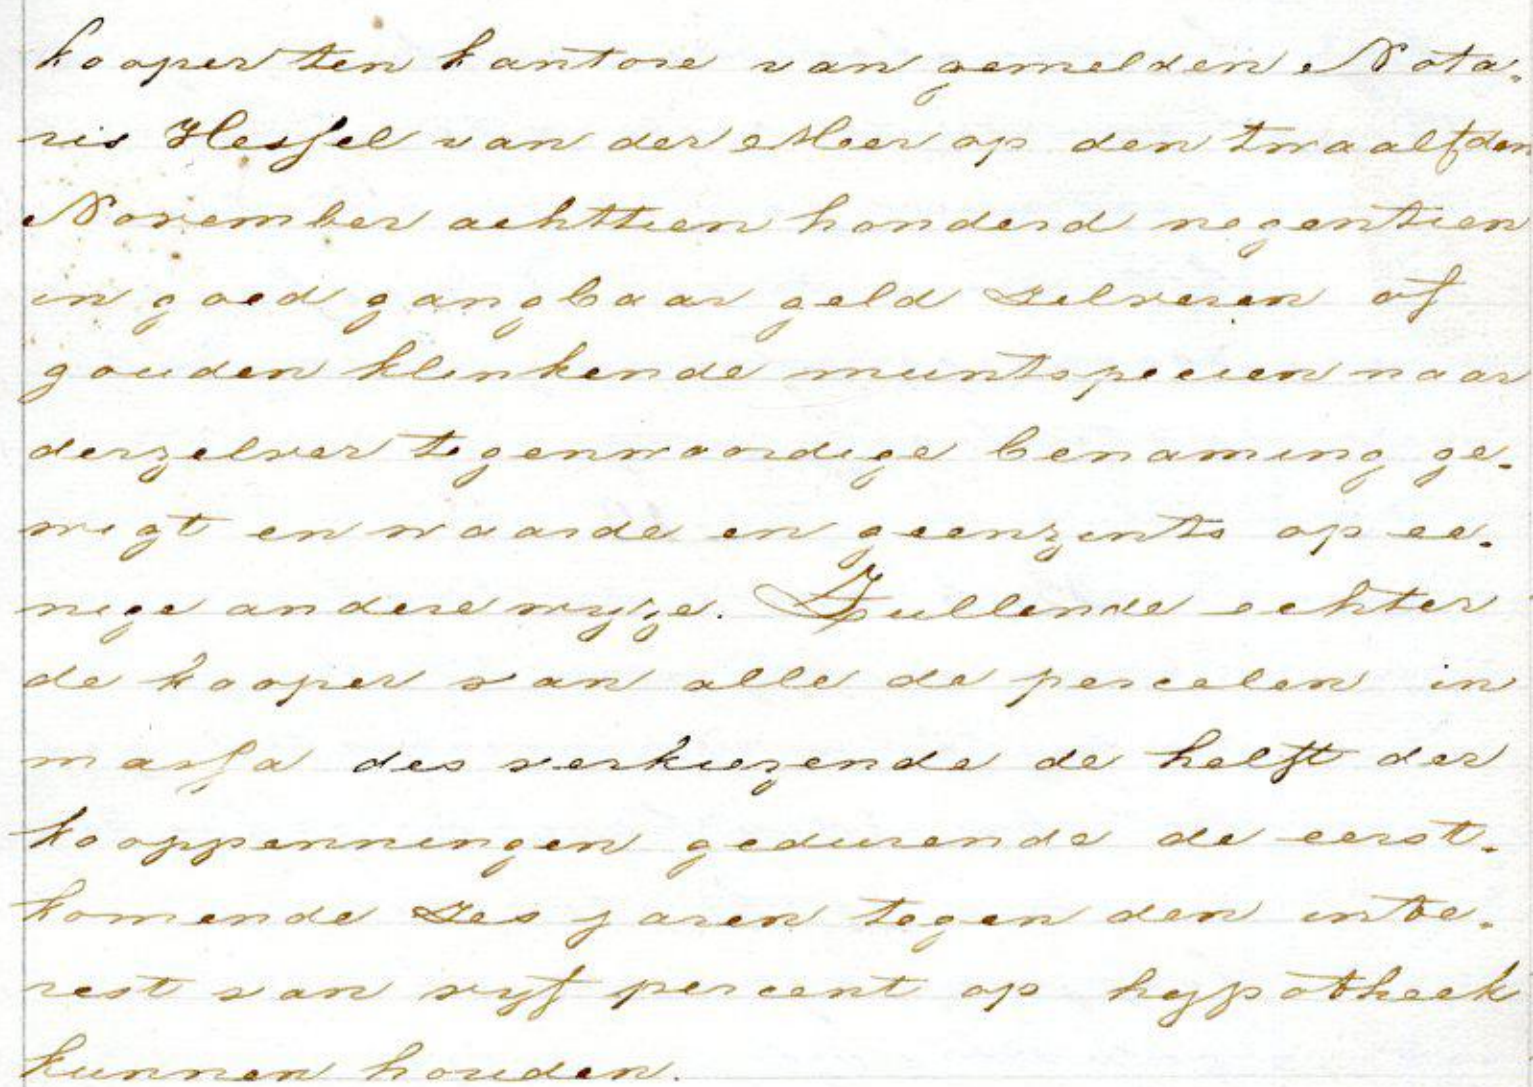 kooper ten kantore van gemelden Nota-
ris Hessel van der Meer op den twaalfden
November achttien honderd negentien
in goed gangbaar geld zelveren of
gouden klinkende muntspecien naar
derzelver tegenwoordige benaming ge-
wigt en waarde en geenzints op ee-
nige andere wyze. Zullende echter
de kooper van alle de percelen in
massa des verkiezende de helft der
kooppenningen gedurende de eerst-
komende zes jaren tegen den inte-
rest van vyf percent op hypotheek
kunnen houden.